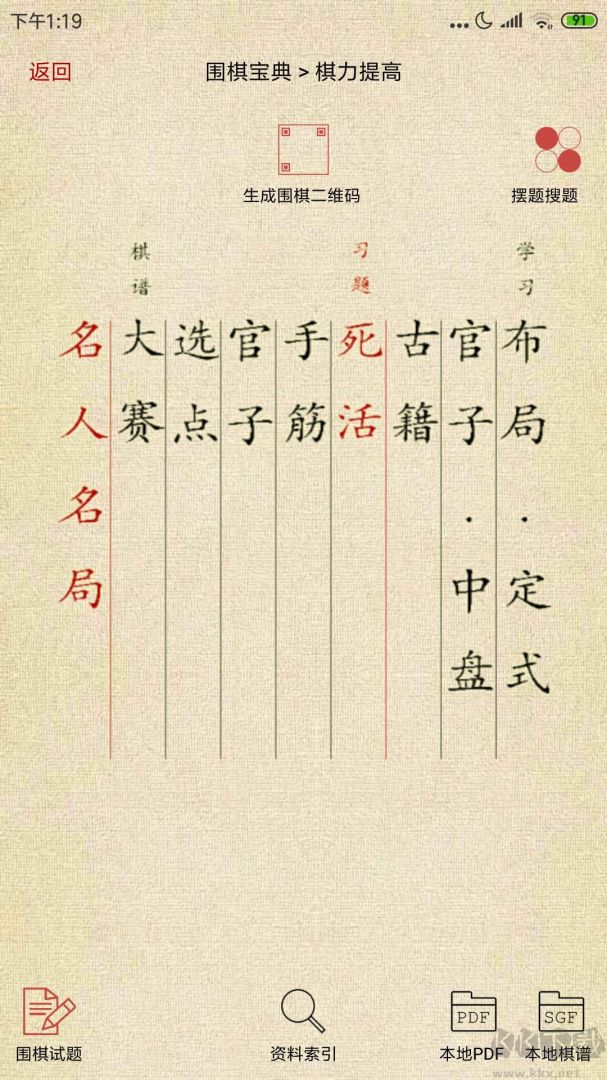 下午1:19
91
返回
围棋宝典 > 棋力提高
生成围棋二维码
摆题搜题
学习
习题
棋谱
布局·定式
官子·中盘
古籍
死活
手筋
官子
选点
大赛
名人名局
PDF
SGF
围棋试题
资料索引
本地PDF
本地棋谱
KK下载
www.kkx.net